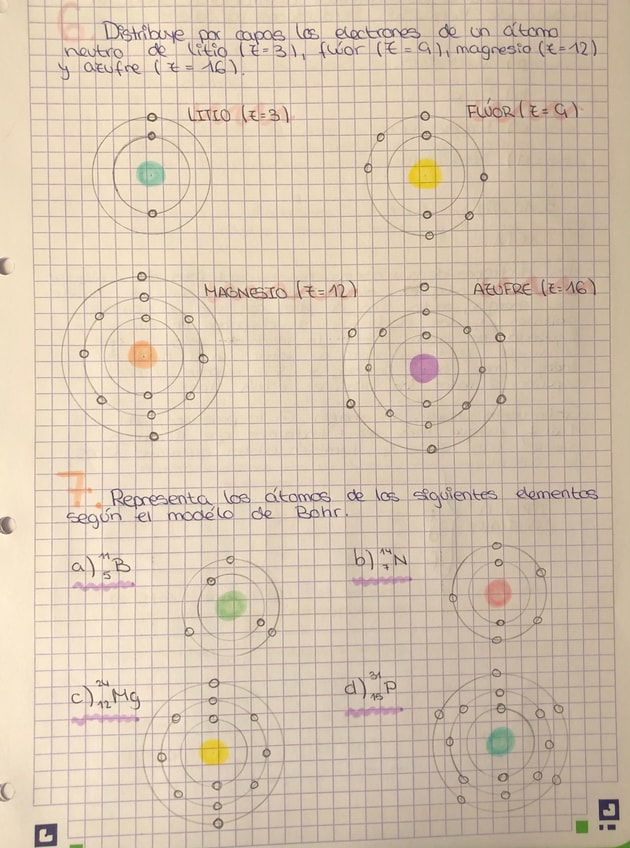 6. Distribuye por capas los electrones de un átomo
neutro de litio (Z=3), flúor (Z=9), magnesio (Z=12)
y azufre (Z=16).
LITIO (Z=3)
FLÚOR (Z=9)
MAGNESIO (Z=12)
AZUFRE (Z=16)
7. Representa los átomos de los siguientes elementos
según el modélo de Bohr.
a) ¹¹₅B
b) ¹⁴₇N
c) ²⁴₁₂Mg
d) ³¹₁₅P